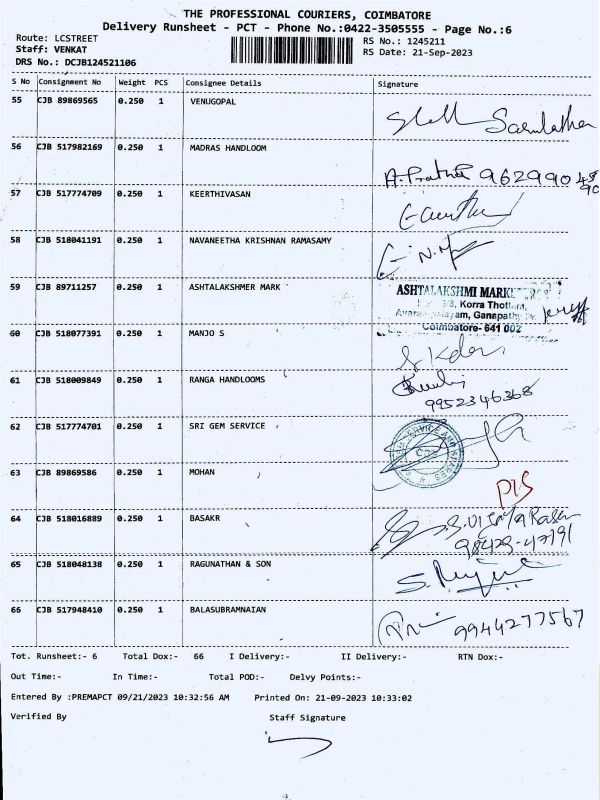 THE PROFESSIONAL COURIERS, COIMBATORE
Delivery Runsheet - PCT - Phone No.:0422-3505555 - Page No.:6
Route: LCSTREET
RS No.: 1245211
Staff: VENKAT
RS Date: 21-Sep-2023
DRS No.: DCJB124521106
S No Consignment No Weight PCS Consignee Details Signature
55 CJB 89869565 0.250 1 VENUGOPAL
56 CJB 517982169 0.250 1 MADRAS HANDLOOM
57 CJB 517774709 0.250 1 KEERTHIVASAN
58 CJB 518041191 0.250 1 NAVANEETHA KRISHNAN RAMASAMY
59 CJB 89711257 0.250 1 ASHTALAKSHMER MARK
ASHTALAKSHMI
Korra
Ganapathy
Coimbatore- 641 002
60 CJB 518077391 0.250 1 MANJO S
61 CJB 518009849 0.250 1 RANGA HANDLOOMS
9952346368
62 CJB 517774701 0.250 1 SRI GEM SERVICE
63 CJB 89869586 0.250 1 MOHAN
64 CJB 518016889 0.250 1 BASAKR
65 CJB 518048138 0.250 1 RAGUNATHAN & SON
66 CJB 517948410 0.250 1 BALASUBRAMNAIAN
9944277567
Tot. Runsheet:- 6 Total Dox:- 66 I Delivery:- II Delivery:- RTN Dox:-
Out Time:- In Time:- Total POD:- Delvy Points:-
Entered By :PREMAPCT 09/21/2023 10:32:56 AM Printed On: 21-09-2023 10:33:02
Verified By Staff Signature